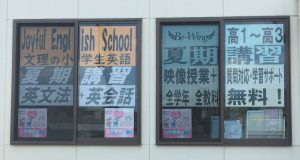 Joyful English School
文理の小学生英語
夏期講習
英文法+英会話
Be-Wing
高1〜高3
夏期講習
映像授業+質問対応・学習サポート
全学年 全教科 無料!